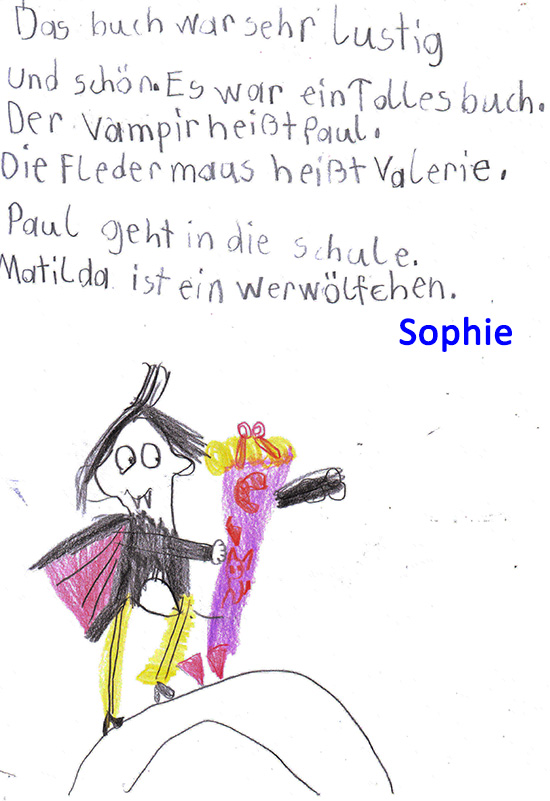 Das buch war sehr lustig
und schön. Es war ein Tolles buch.
Der Vampir heißt Paul.
Die Fledermaus heißt Valerie.
Paul geht in die schule.
Matilda ist ein werwölfchen.
Sophie